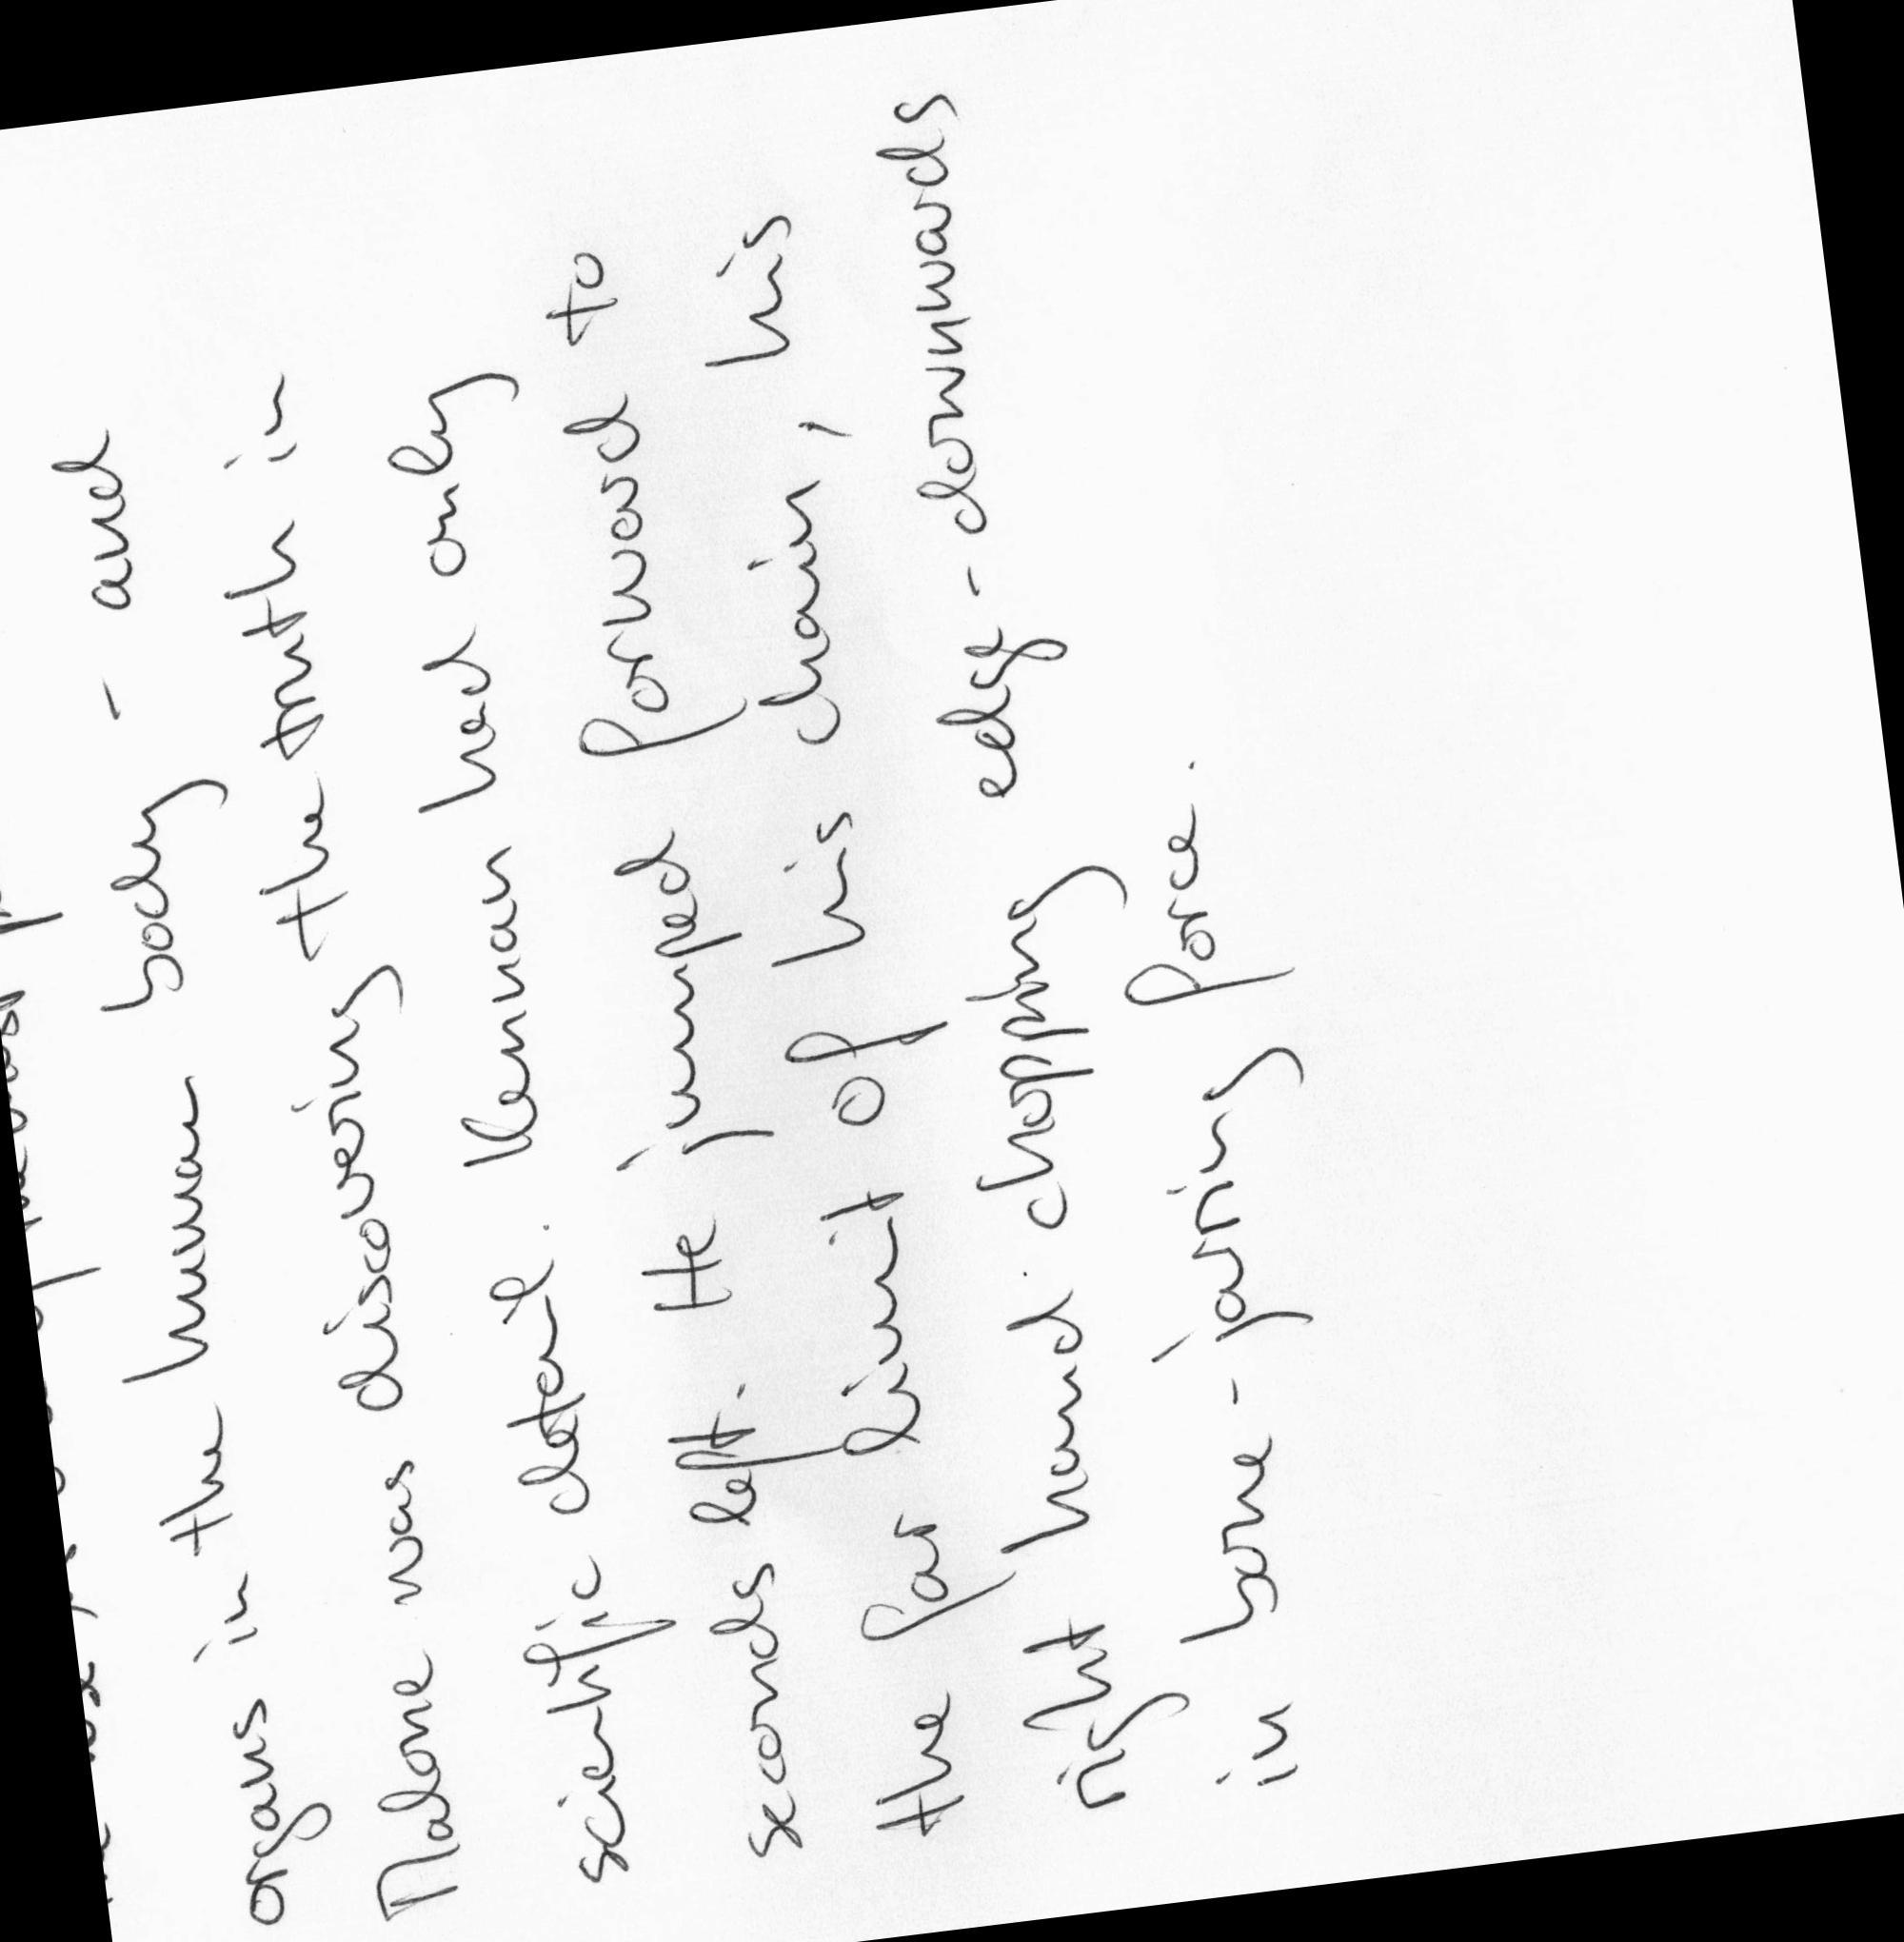 organs in the human body - and
Malone was discovering the truth in
scientific detail. Kennan had only
seconds left. He jumped forward to
the far limit of his chain, his
right hand chopping edg - downwards
in bone-jarring force.